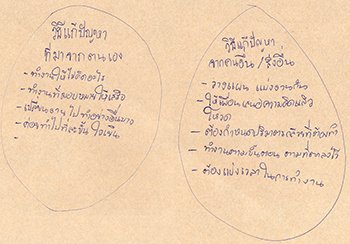 วิธีแก้ปัญหา
ที่มาจากตนเอง
- ทำงานให้
- ทำงานที่มอบหมายให้เสร็จ
- เปลี่ยนงานไปทำอย่างอื่นบ้าง
- ค่อยทำไปทีละขั้น ใจเย็น
วิธีแก้ปัญหา
จากคนอื่น/สิ่งอื่น
- วางแผน แบ่งงานกัน
ให้เพื่อนเสนอความคิดแล้ว
โหวต
- ต้องกำหนดปริมาณที่ต้องทำ
- ทำงานตามขั้นตอน ตามที่ตกลงไว้
- ต้องแบ่งเวลาในการทำงาน